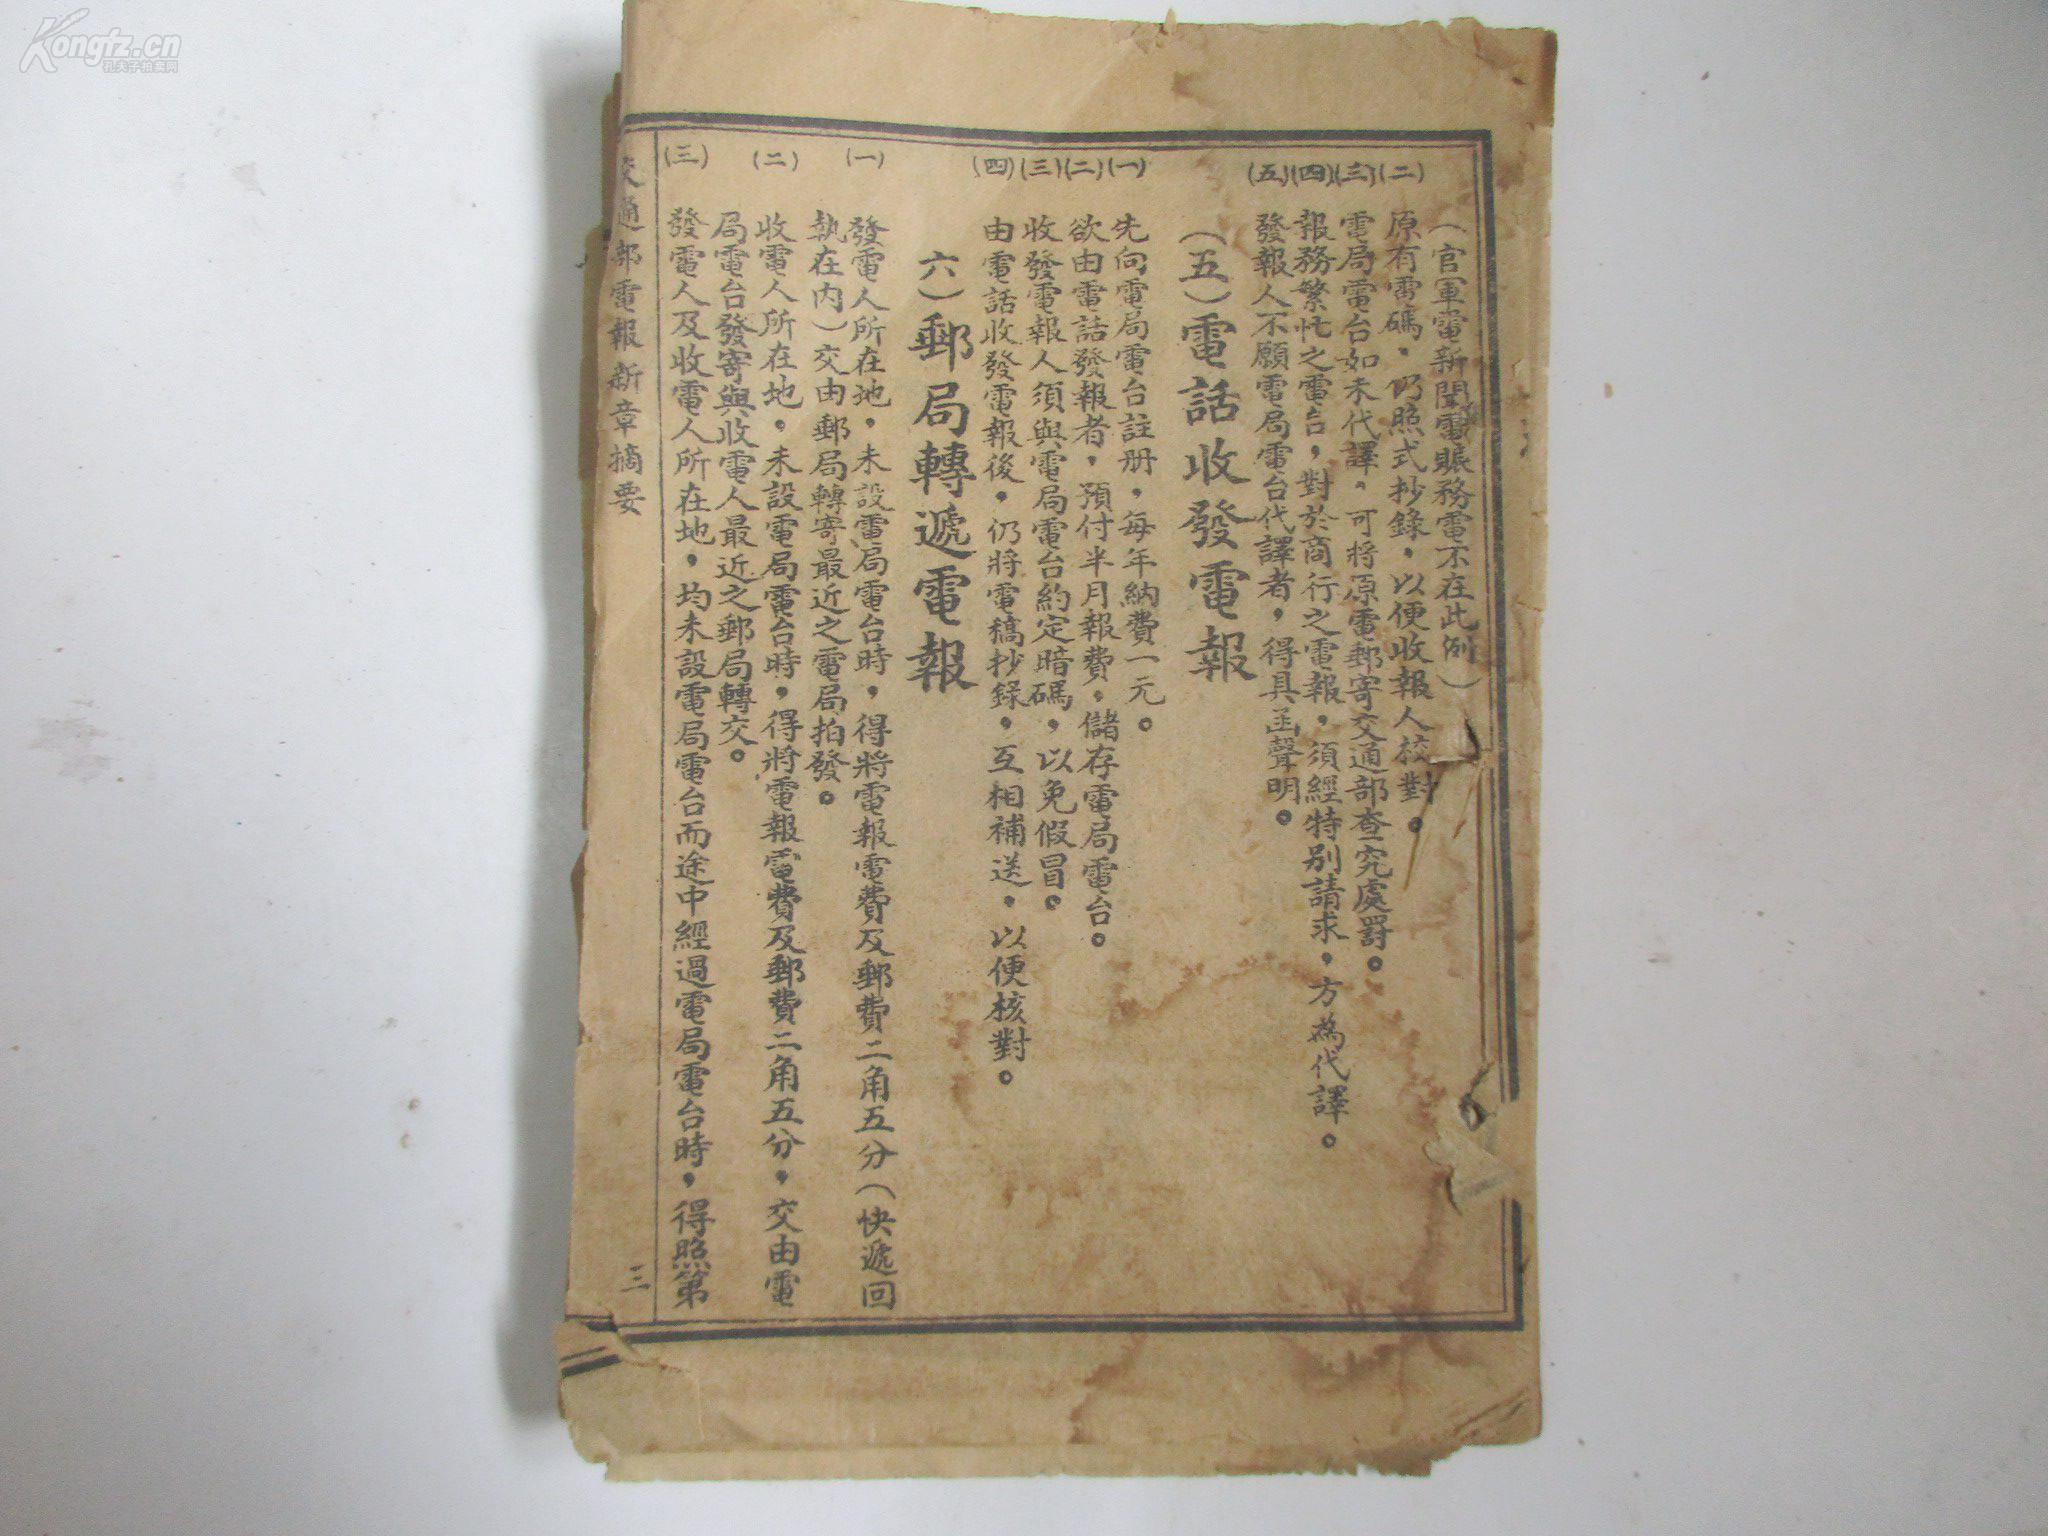 Kongfz.cn
孔夫子拍卖网
（官軍電新聞電賑務電不在此例）
（二）原有電碼，仍照式抄錄，以便收報人校對。
（三）電局電台如未代譯，可將原電郵寄交通部查究處罰。
（四）報務繁忙之電台，對於商行之電報，須經特別請求，方為代譯。
（五）發報人不願電局電台代譯者，得具函聲明。
（五）電話收發電報
（一）先向電局電台註册，每年納費一元。
（二）欲由電話發報者，預付半月報費，儲存電局電台。
（三）收發電報人須與電局電台約定暗碼，以免假冒。
（四）由電話收發電報後，仍將電稿抄錄，互相補送，以便核對。
六）郵局轉遞電報
（一）發電人所在地，未設電局電台時，得將電報電費及郵費二角五分（快遞回
執在內）交由郵局轉寄最近之電局拍發。
（二）收電人所在地，未設電局電台時，得將電報電費及郵費二角五分，交由電
局電台發寄與收電人最近之郵局轉交。
（三）發電人及收電人所在地，均未設電局電台而途中經過電局電台時，得照第
交通部電報新章摘要
三